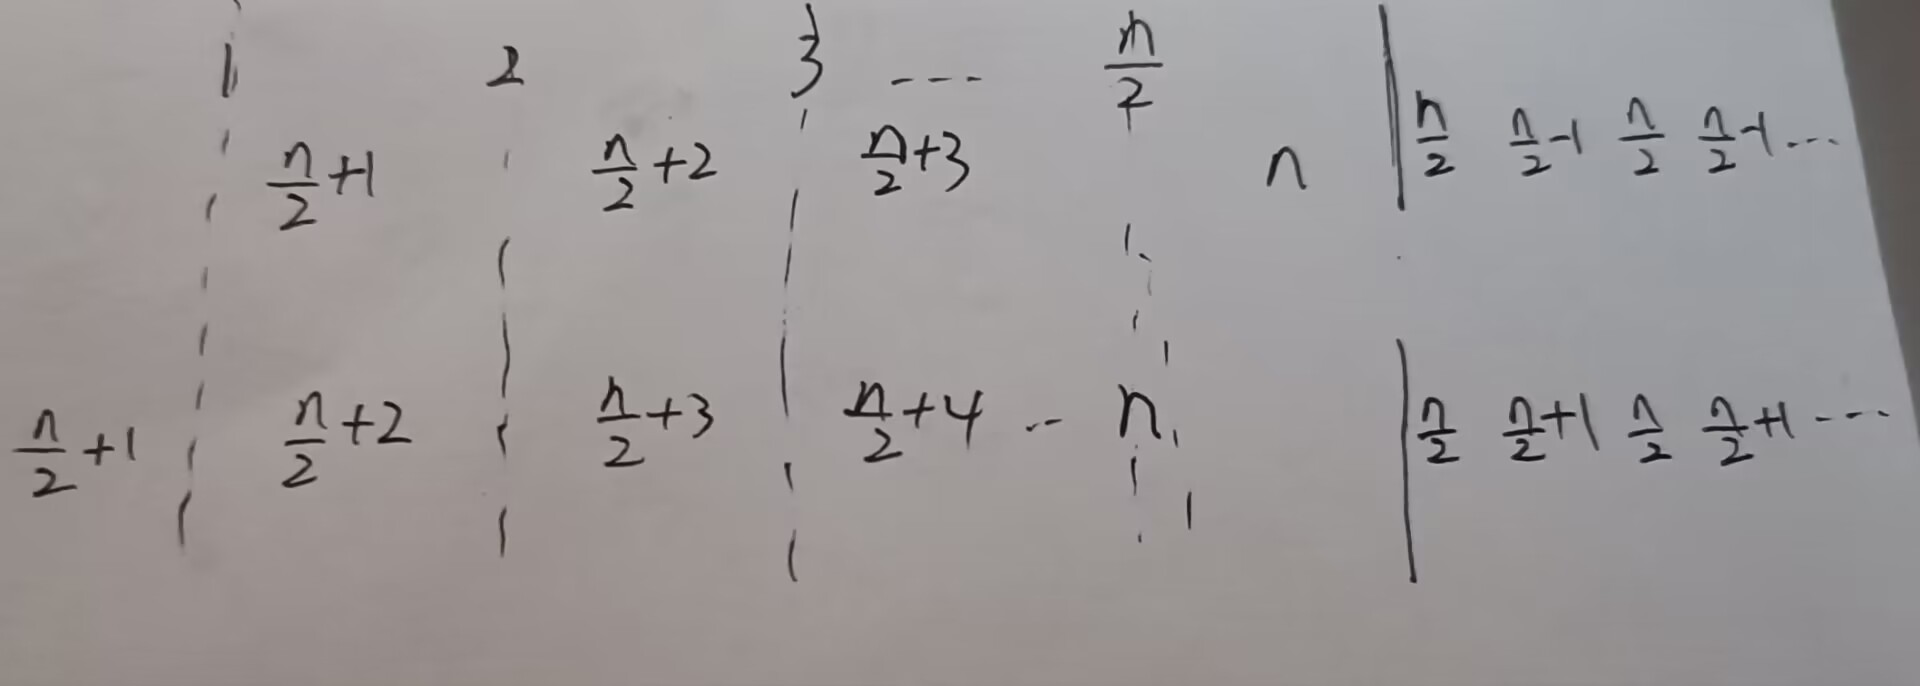 1 2 3 ---- n/2
n/2+1 n/2+2 n/2+3 n | n/2 n/2-1 n/2 n/2-1 ...
n/2+1 n/2+2 n/2+3 n/2+4 -- n | n/2 n/2+1 n/2 n/2+1 ----